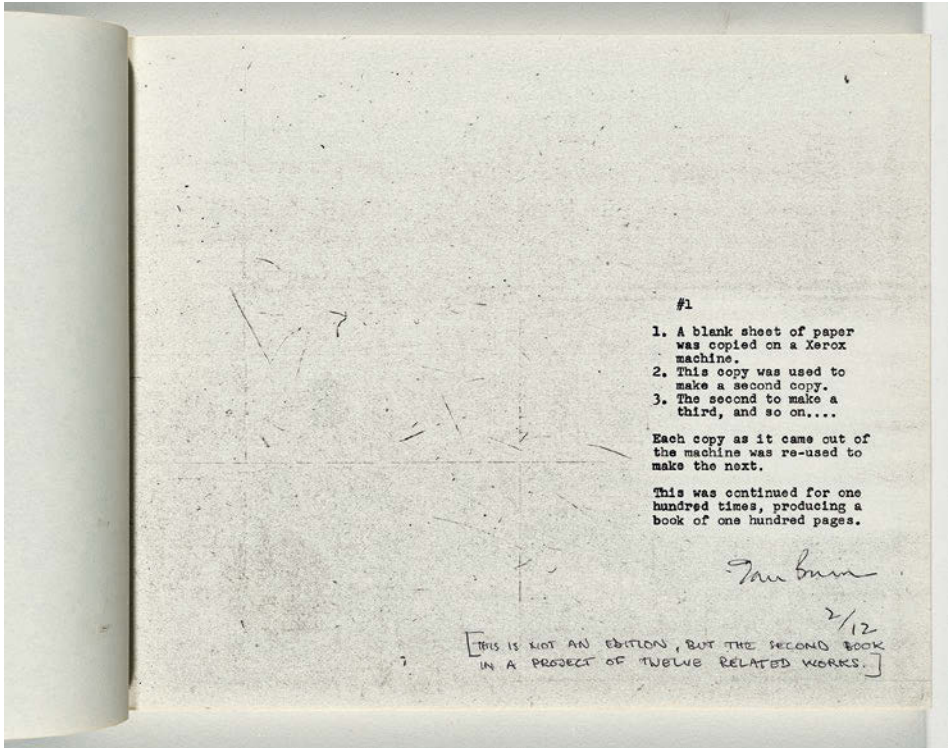 #1
1. A blank sheet of paper
was copied on a Xerox
machine.
2. This copy was used to
make a second copy.
3. The second to make a
third, and so on....
Each copy as it came out of
the machine was re-used to
make the next.
This was continued for one
hundred times, producing a
book of one hundred pages.
Ian Burn
2/12
[THIS IS NOT AN EDITION, BUT THE SECOND BOOK
IN A PROJECT OF TWELVE RELATED WORKS.]